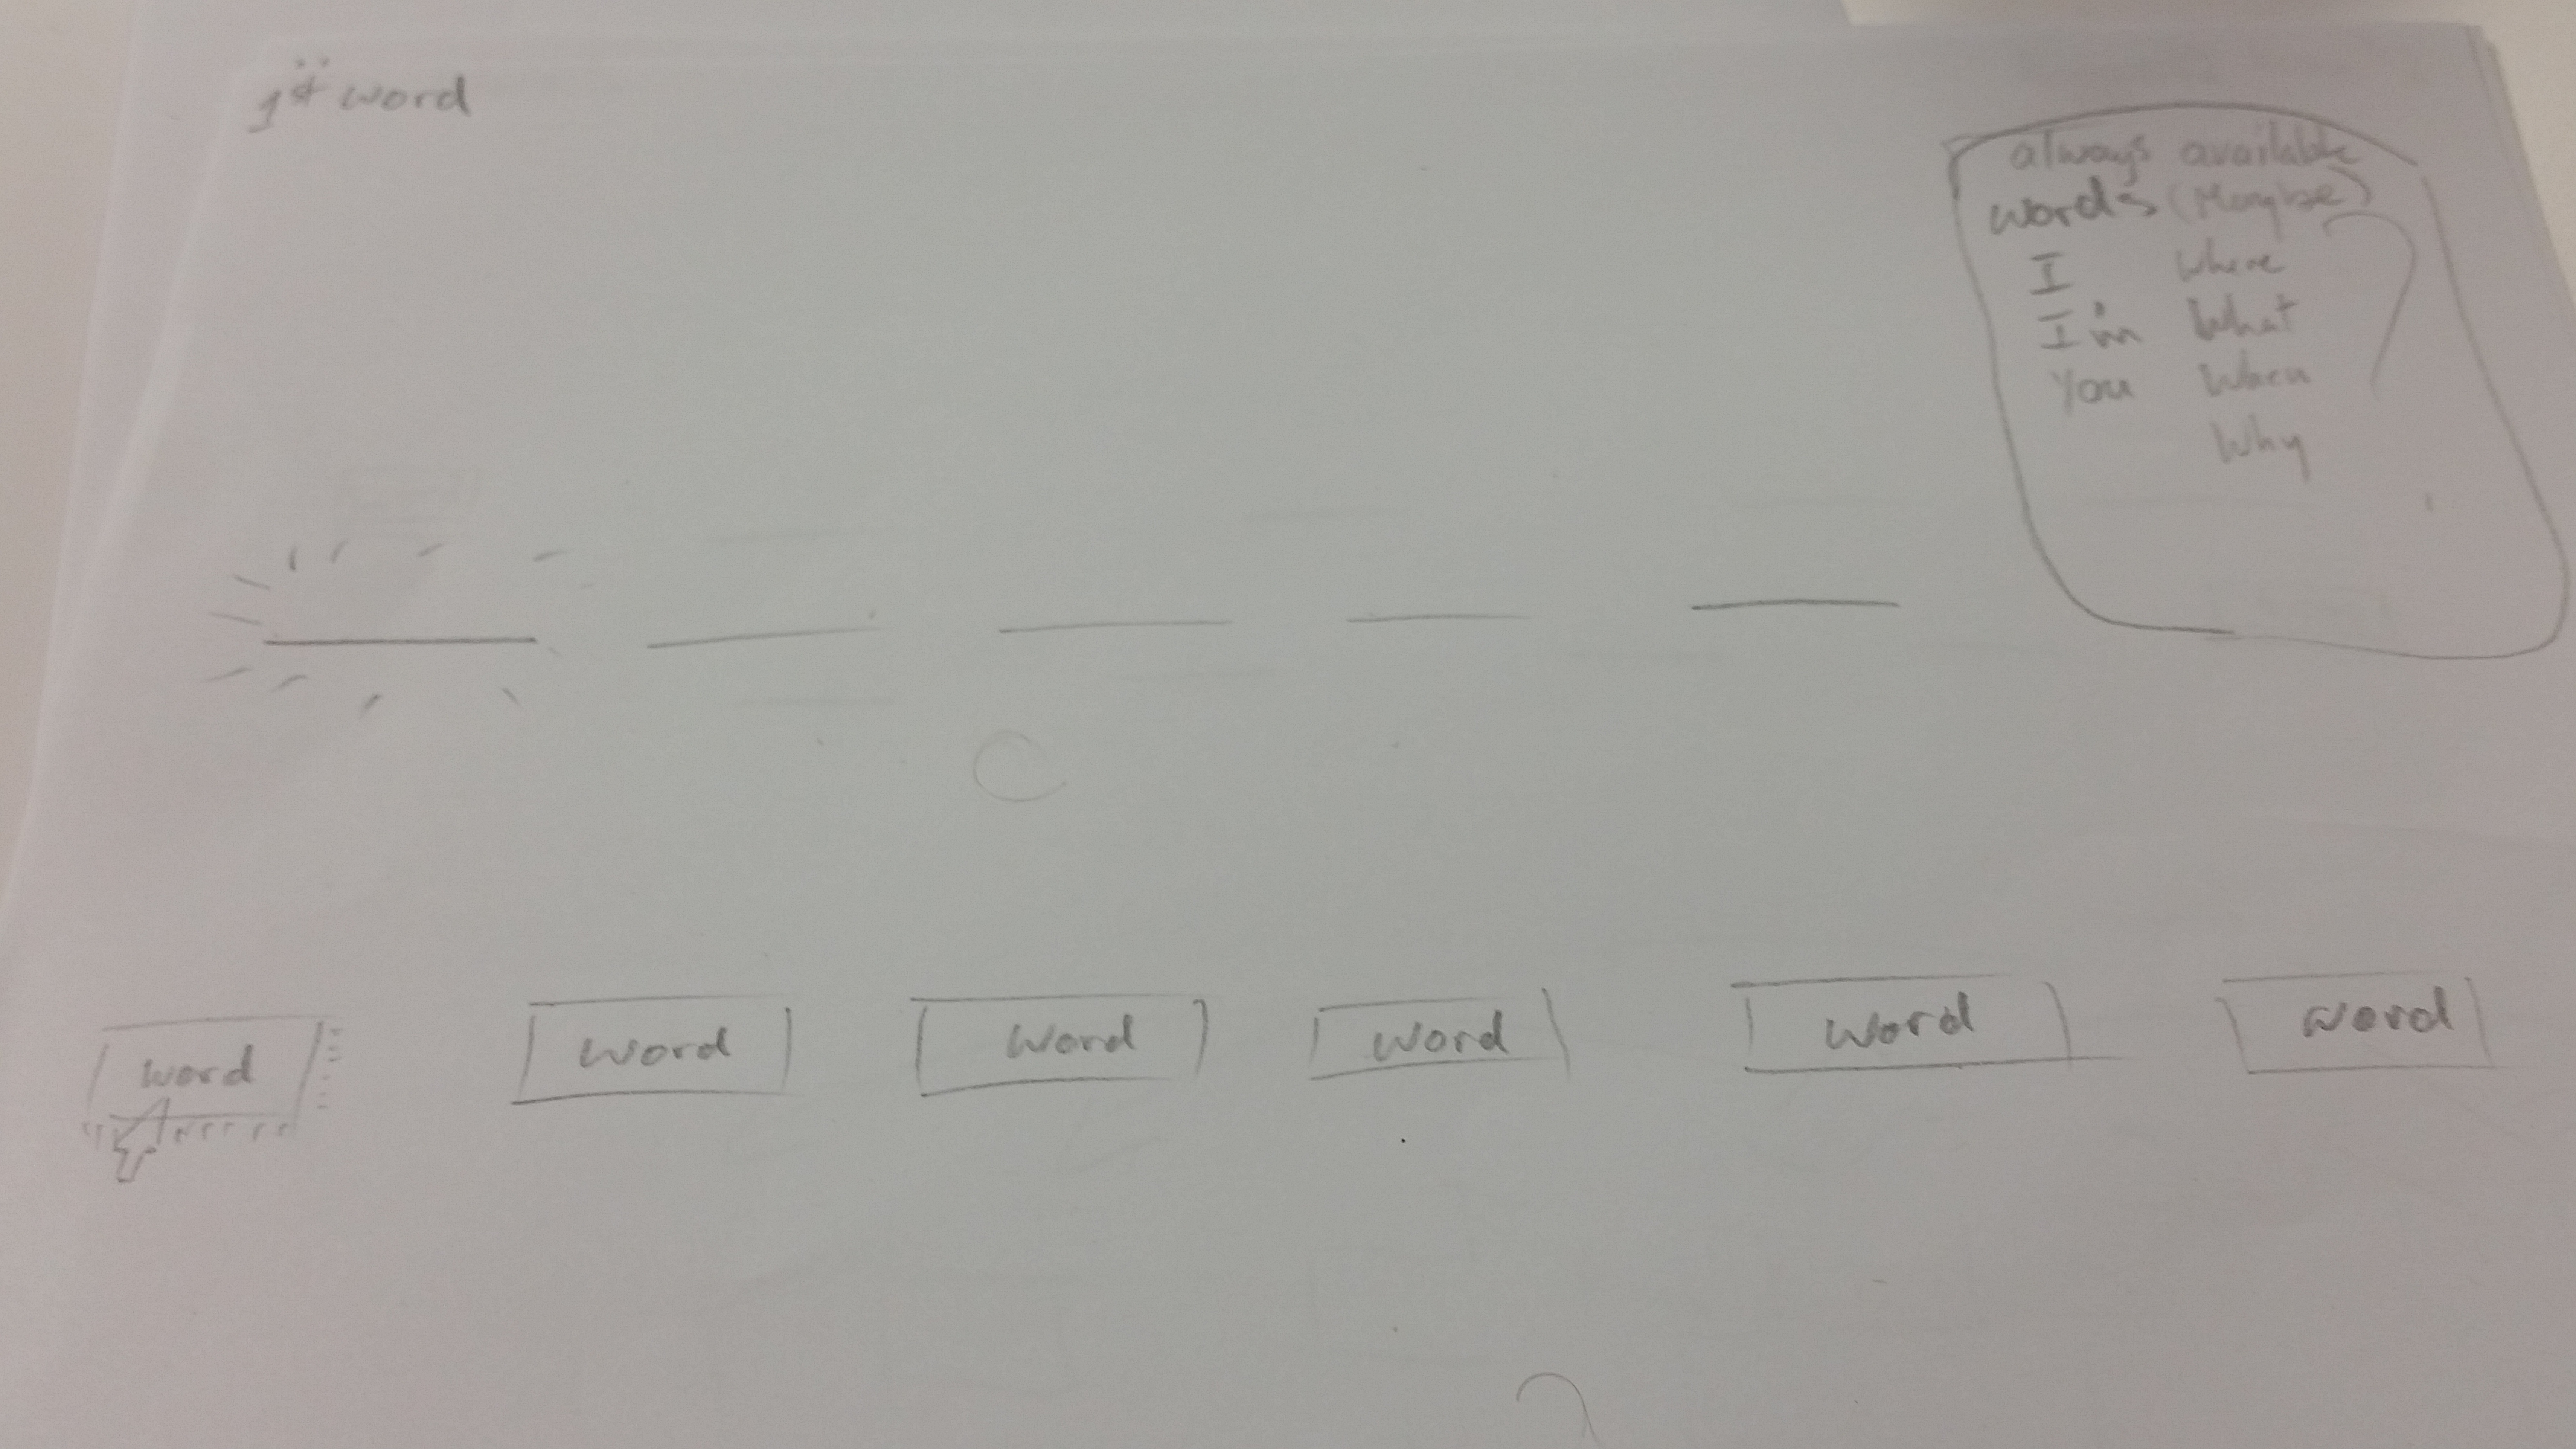 1st word
always available
words (Maybe)
I Where
I'm What
You When
Why
word word word word word word